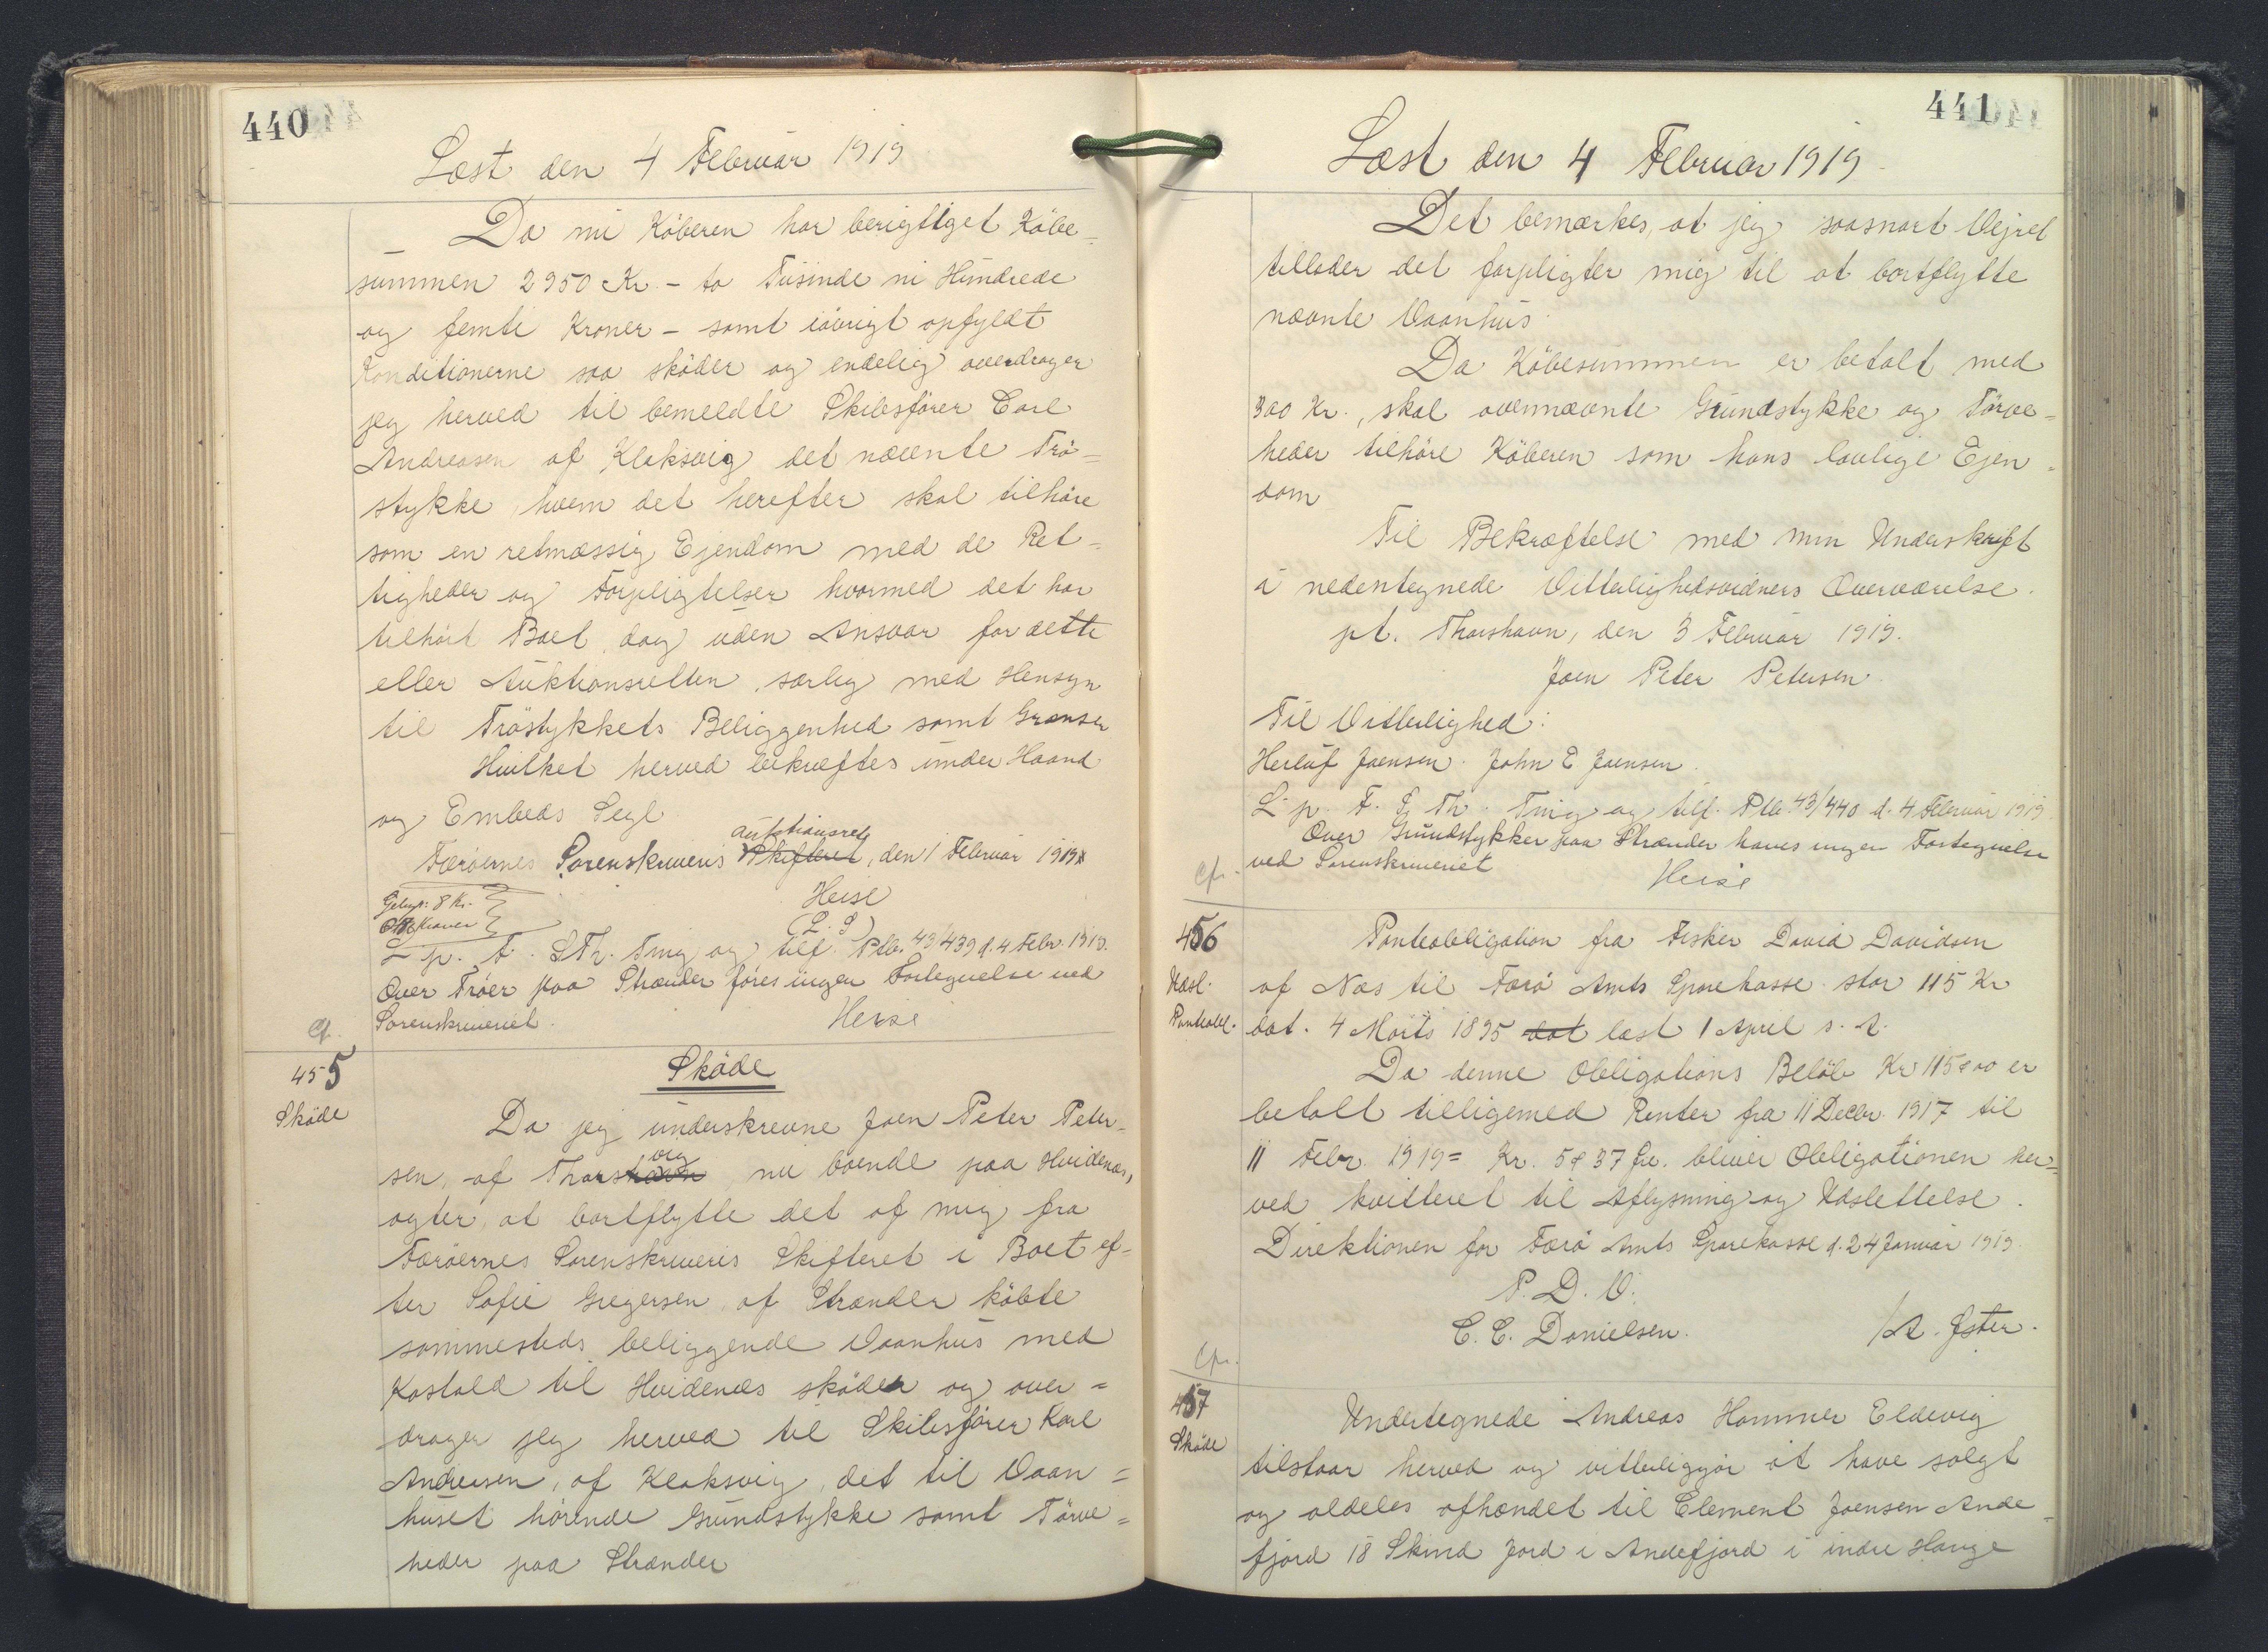 440
Læst den 4 Februar 1919
Da nu Köberen har berigtiget Købe=
summen 2950 Kr. - to Tusinde ni Hundrede
og femti Kroner - samt iövrigt opfyldt
Konditionerne saa sköder og endelig overdrager
jeg herved til bemeldte Skibsförer Carl
Andreasen af Klaksvig det nævnte Trö=
stykke, hvem det herefter skal tilhöre
som en retmæssig Ejendom med de Ret=
tigheder og Forpligtelser hvormed det har
tilhört Boet, dog uden Ansvar for dette
eller Auktionsretten, særlig med Hensyn
til Tröstykkets Beliggenhed samt Grænser
Hvilket herved bekræftes under Haand
og Embeds Segl
auktionsret
Færöernes Sorenskriveris Skifteret, den 1 Februar 1919
Gebyr: 8 Kr.
Otte Kroner
Heise
(L. S)
L. p. F. S Th. Ting og tilf. Ptb. 43/439 d. 4 Febr. 1919.
Over Tröer paa Strænder föres ingen Fortegnelse ved
Sorenskriveriet.
Heise
Cf.
455
Sköde
Sköde
Da jeg underskrevne Joen Peter Peter=
vig
sen, af Thorshavn, nu boende paa Hvidenæs,
agter, at bortflytte det af mig fra
Færöernes Sorenskriveris Skifteret i Boet ef=
ter Sofie Gregersen, af Strænder köbte
sammesteds beliggende Vaanhus med
Kostald til Hvidenæs sköder og over=
drager jeg herved til Skibsförer Karl
Andreasen, af Klaksvig, det til Vaan=
huset hörende Grundstykke samt Törve=
heder paa Strænder
441
Læst den 4 Februar 1919
Det bemærkes, at jeg saasnart Vejret
tillader det forpligter mig til at bortflytte
nævnte Vaanhus
Da Köbesummen er betalt med
300 Kr., skal ovennævnte Grundstykke og Törve=
heder tilhöre Köberen som hans lovlige Ejen=
dom
Til Bekræftelse med min Underskrift
i nedentegnede Vitterlighedsvidners Overværelse.
pt. Thorshavn, den 3 Februar 1919.
Joen Peter Petersen
Til Vitterlighed:
Herluf Joensen. John E Joensen.
L. p. F. S. Th. Ting og tilf. Ptb. 43/440 d. 4 Februar 1919.
Over Grundstykker paa Strænder haves ingen Fortegnelse
ved Sorenskriveriet
Heise
Cfr.
456
Udsl.
Panteobl.
Panteobligation fra Fisker David Davidsen
af Næs til Færö Amts Sparekasse stor 115 Kr
dat. 4 Marts 1895 dat læst 1 April s. A.
Da denne Obligations Belöb Kr 115 00 er
betalt tilligemed Renter fra 11 Decbr. 1917 til
11 Febr. 1919 = Kr. 5 37 Öre. bliver Obligationen her=
ved kvitteret til Aflysning og Udslettelse.
Direktionen for Færö Amts Sparekasse d. 24 Januar 1919.
P. D. V.
C. C. Danielsen.
Cfr.
457
Sköde
Undertegnede Andreas Hammer Eldevig
tilstaar herved og vitterliggör at have solgt
og aldeles afhændet til Clement Joensen Ande=
fjord 18 Skind Jord i Andefjord i indre Hauge